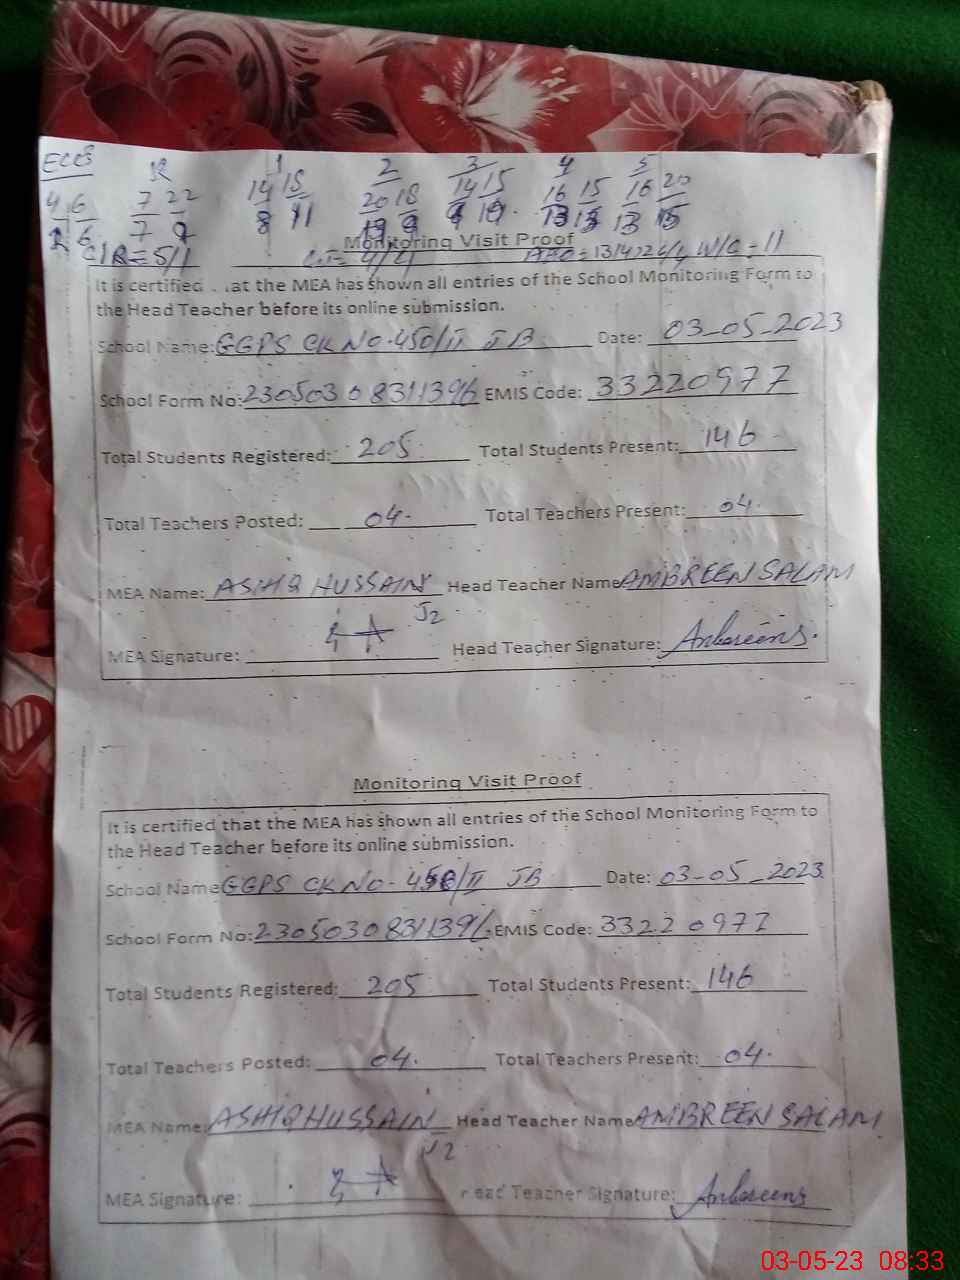 ECCE K 1 2 3 4 5
4 6 7 22 14 15 20 18 14 15 16 15 16 20
6 7 9 8 11 9 13 13 13 15
C/R = 5/1 4/4 W/C = 11
Monitoring Visit Proof
It is certified at the MEA has shown all entries of the School Monitoring Form to
the Head Teacher before its online submission.
School Name: GGPS CK NO. 450/II JB Date: 03-05-2023
School Form No: 2305030831396 EMIS Code: 33220977
Total Students Registered: 205 Total Students Present: 146
Total Teachers Posted: 04. Total Teachers Present: 04.
MEA Name: ASHIQ HUSSAIN Head Teacher Name AMBREEN SALAM
J2
MEA Signature: Head Teacher Signature: Anbareens.
Monitoring Visit Proof
It is certified that the MEA has shown all entries of the School Monitoring Form to
the Head Teacher before its online submission.
School Name GGPS CK NO. 450/II JB Date: 03-05-2023
School Form No: 2305030831396 EMIS Code: 33220977
Total Students Registered: 205 Total Students Present: 146
Total Teachers Posted: 04. Total Teachers Present: 04.
MEA Name: ASHIQ HUSSAIN Head Teacher Name AMBREEN SALAM
J2
MEA Signature: ead Teacher Signature: Anbareens
03-05-23 08:33